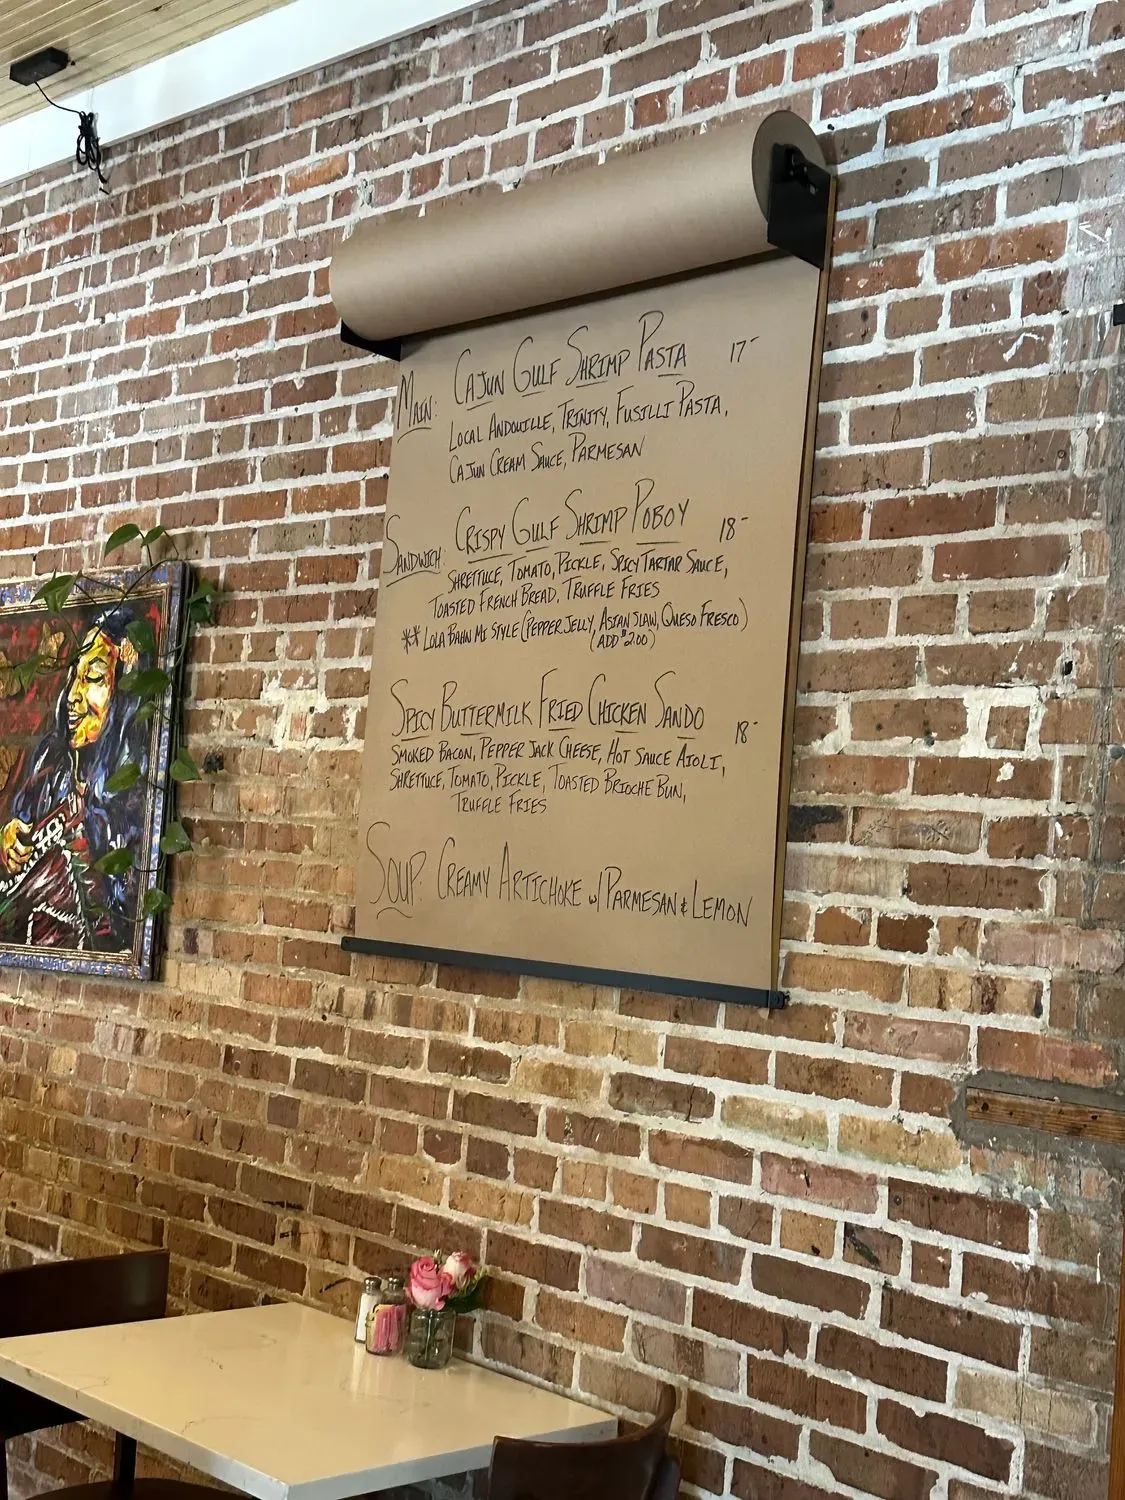 MAIN: CAJUN GULF SHRIMP PASTA 17-
LOCAL ANDOUILLE, TRINITY, FUSILLI PASTA,
CAJUN CREAM SAUCE, PARMESAN
SANDWICH: CRISPY GULF SHRIMP POBOY 18-
SHRETTUCE, TOMATO, PICKLE, SPICY TARTAR SAUCE,
TOASTED FRENCH BREAD, TRUFFLE FRIES
** LOLA BAHN MI STYLE (PEPPER JELLY, ASIAN SLAW, QUESO FRESCO)
(ADD $2.00)
SPICY BUTTERMILK FRIED CHICKEN SANDO 18-
SMOKED BACON, PEPPER JACK CHEESE, HOT SAUCE AIOLI,
SHRETTUCE, TOMATO, PICKLE, TOASTED BRIOCHE BUN,
TRUFFLE FRIES
SOUP: CREAMY ARTICHOKE w/ PARMESAN & LEMON